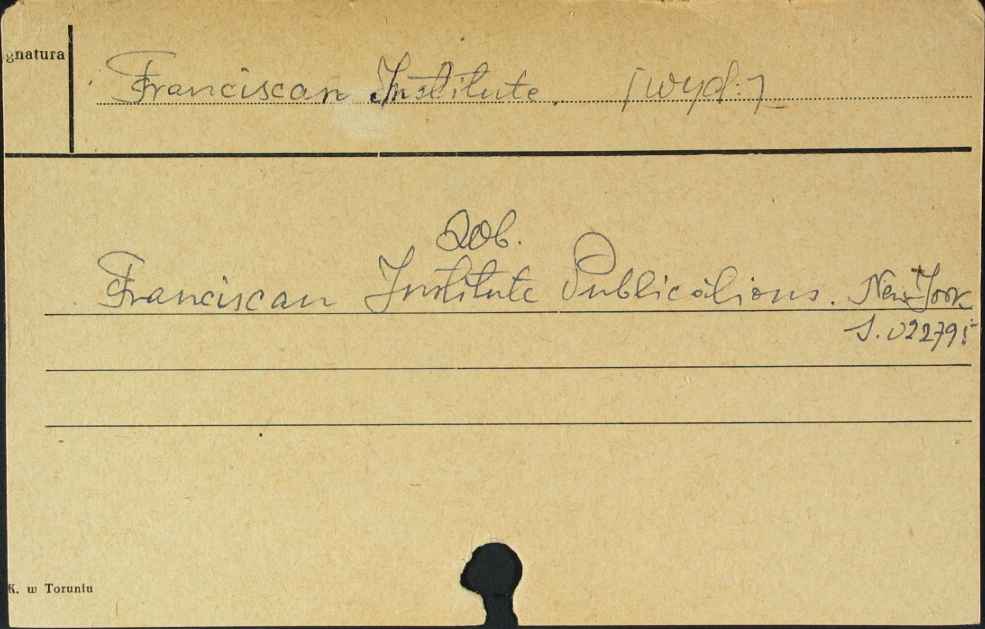 gnatura
Franciscan Institute. [wyd:]
Zob.
Franciscan Institute Publications. New York
K. w Toruniu